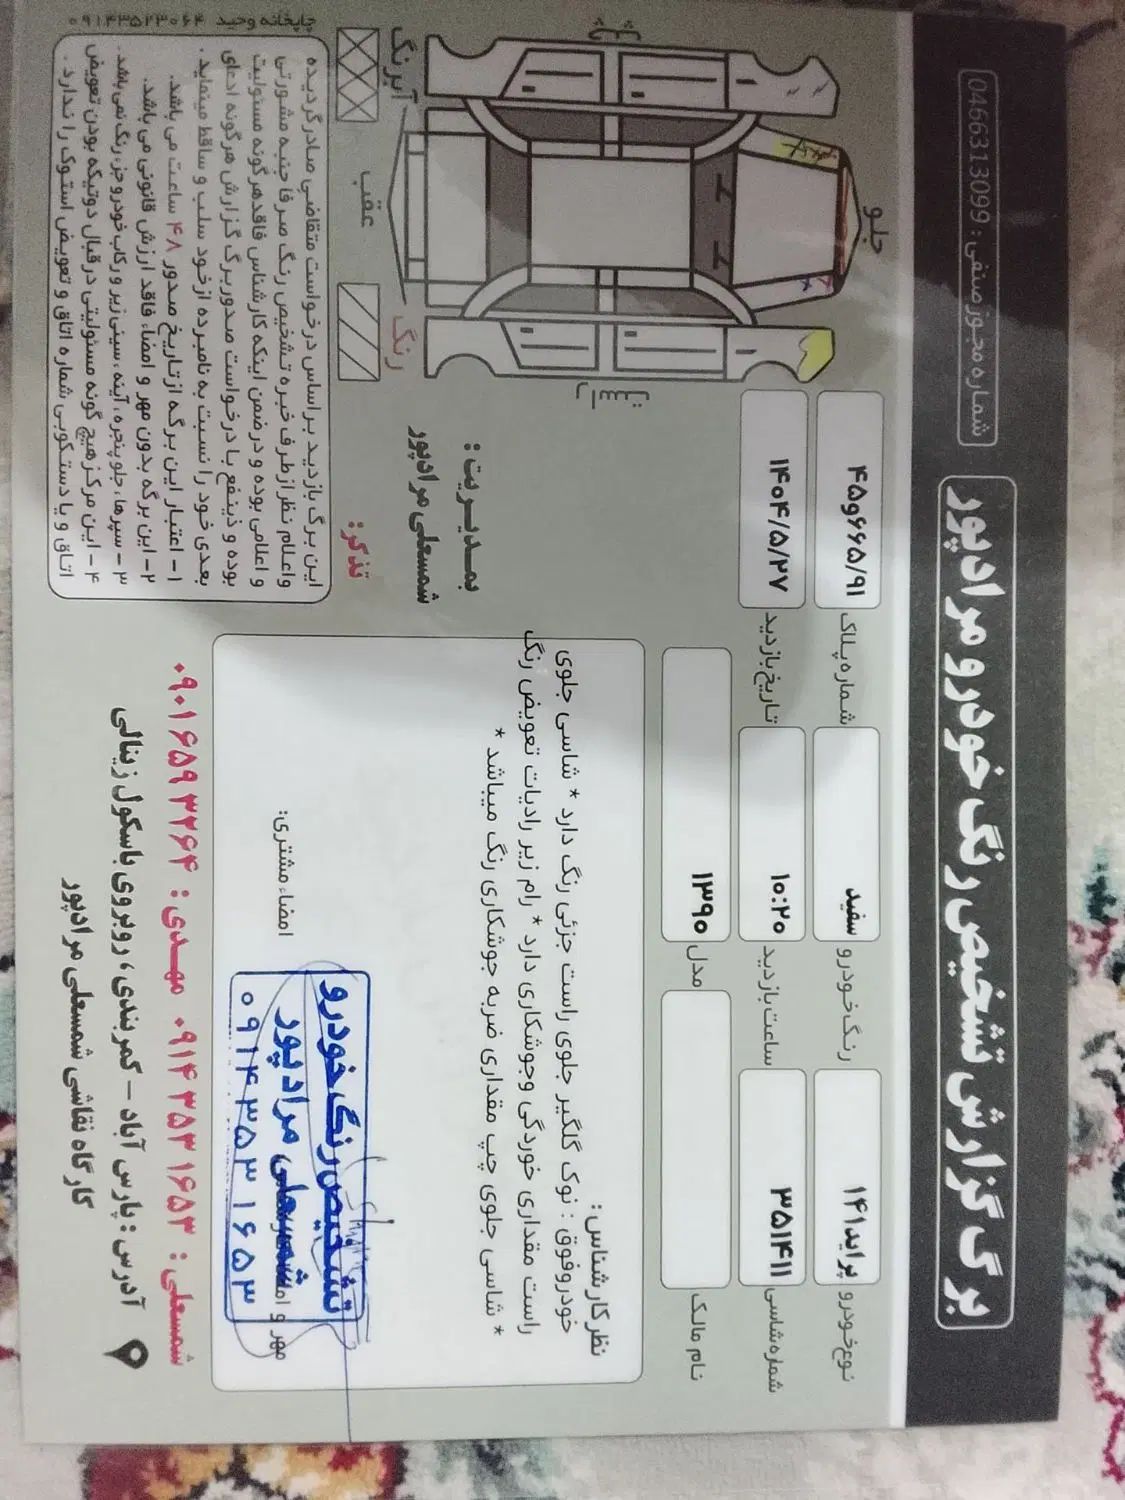 برگ گزارش تشخیص رنگ خودرو مرادپور
شماره مجوز صنفی: 0466313099
نوع خودرو پراید۱۴۱
رنگ خودرو سفید
شماره پلاک ۹۱/۶۶۵و۴۵
شماره شاسی ۳۵۱۴۱۱
ساعت بازدید ۱۰:۲۰
تاریخ بازدید ۱۴۰۴/۵/۲۷
نام مالک
مدل ۱۳۹۰
نظر کارشناس:
خودروفوق : نوک گلگیر جلوی راست جزئی رنگ دارد * شاسی جلوی
راست مقداری خوردگی وجوشکاری دارد * رام زیر رادیات تعویض رنگ
* شاسی جلوی چپ مقداری ضربه جوشکاری رنگ میباشد *
مهر و امضاء
امضاء مشتری:
تشخیص رنگ خودرو
شمسعلی مرادپور
۰۹۱۴۳۵۳۱۶۵۳
جلو
عقب
راست
چپ
رنگ
آبرنگ
بمدیریت:
شمسعلی مرادپور
تذکر:
این برگ بازدید براساس درخواست متقاضی صادر گردیده
واعلام نظر از طرف خبره تشخیص رنگ صرفا جنبه مشورتی
و اعلامی بوده و در ضمن اینکه کارشناس فاقد هرگونه مسئولیت
بوده و ذینفع با درخواست صدور برگ گزارش هرگونه ادعای
بعدی خود را نسبت به نامبرده از خود سلب و ساقط مینماید.
۱- اعتبار این برگه از تاریخ صدور ۴۸ ساعت می باشد.
۲- این برگه بدون مهر و امضاء، فاقد ارزش قانونی می باشد.
۳- سپرها، جلو پنجره، آینه، سینی زیر و رکاب خودرو جزء رنگ نمی باشد.
۴- این مرکز هیچ گونه مسئولیتی در قبال دوتیکه بودن تعویض
اتاق و یا دستکوبی شماره اتاق و تعویض استوک را ندارد.
شمسعلی: ۰۹۱۴۳۵۳۱۶۵۳ مهدی: ۰۹۰۱۶۵۹۳۲۶۴
آدرس: پارس آباد - کمربندی، روبروی باسکول زینالی
کارگاه نقاشی شمسعلی مرادپور
چاپخانه وحید ۰۹۱۴۳۵۲۳۰۶۴